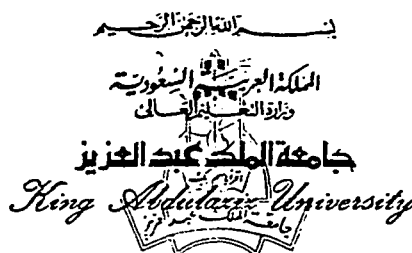 بسم الله الرحمن الرحيم
المملكة العربية السعودية
وزارة التعليم العالي
جامعة الملك عبد العزيز
King Abdulaziz University
جامعة الملك عبد العزيز